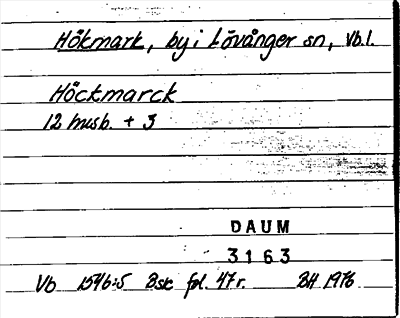 Hökmark, by i Lövånger sn, Vb.l.
Höckmarck
12 husb. + 3
DAUM
3163
Vb 1546:5 Bsk fol. 47r. BH 1976